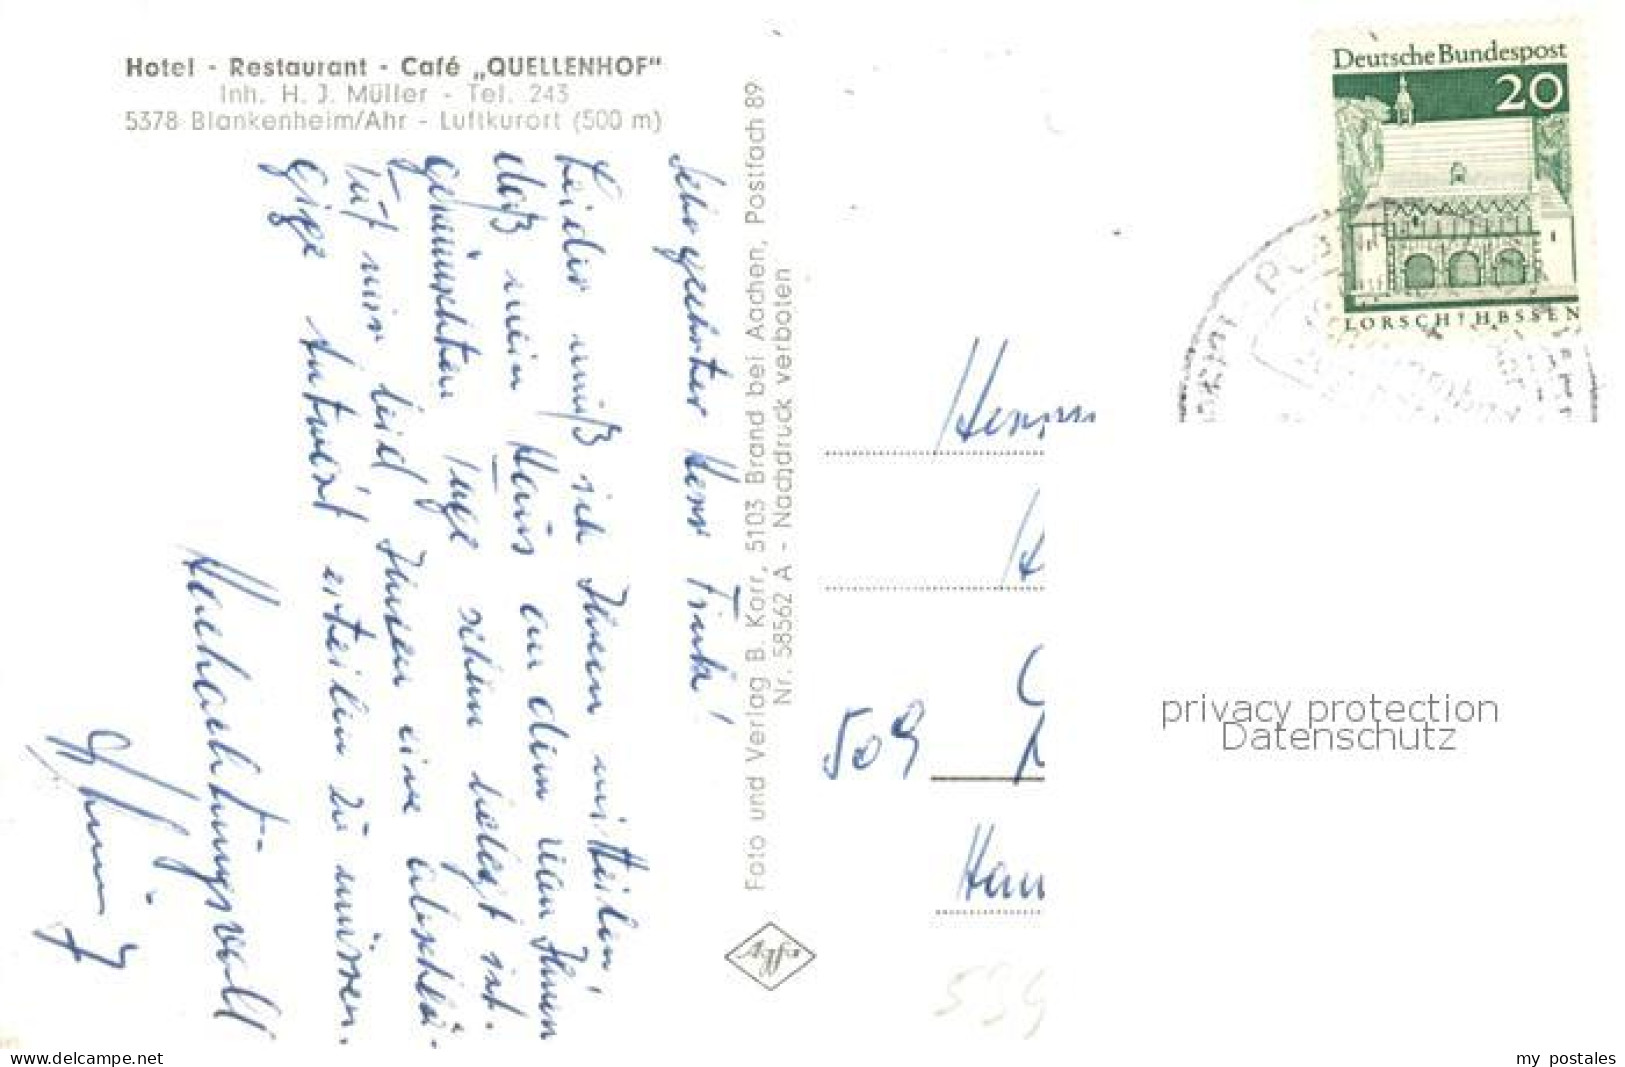 Hotel - Restaurant - Café „QUELLENHOF“
Inh. H. J. Müller - Tel. 243
5378 Blankenheim/Ahr - Luftkurort (500 m)
Sehr geehrter Herr Finke!
Leider muß ich Ihnen mitteilen,
daß mein Haus an dem von Ihnen
gewünschten Tage schon belegt ist.
Es tut mir leid Ihnen eine abschlä-
gige Antwort erteilen zu müssen.
Hochachtungsvoll
Foto und Verlag B. Korr, 5103 Brand bei Aachen, Postfach 89
Nr. 58562 A - Nachdruck verboten
Deutsche Bundespost
20
LORSCH / HESSEN
Herrn
509
privacy protection
Datenschutz
539
www.delcampe.net
my postales